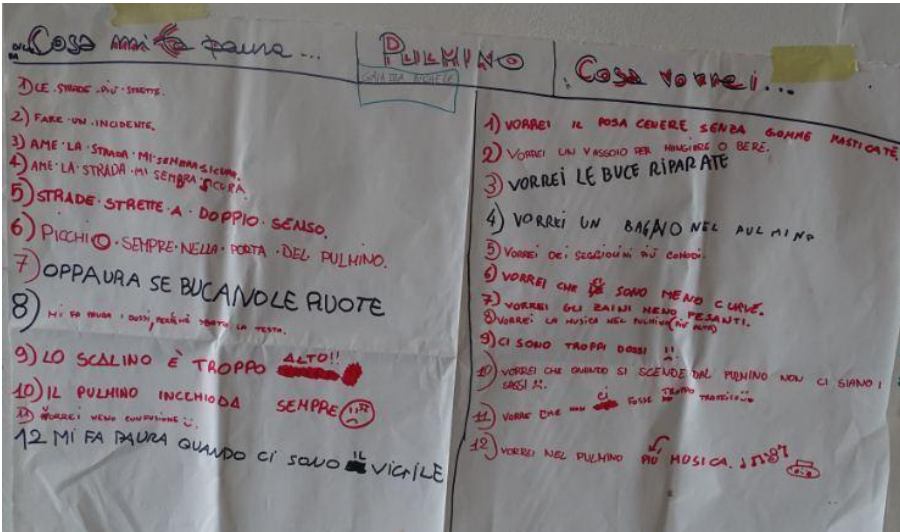 Cosa mi fa paura...
PULMINO
Cosa vorrei...
1) LE STRADE PIÙ STRETTE.
2) FARE UN INCIDENTE.
3) AME LA STRADA MI SEMBRA SICURA.
4) AME LA STRADA MI SEMBRA SICURA.
5) STRADE STRETTE A DOPPIO SENSO.
6) PICCHIO SEMPRE NELLA PORTA DEL PULMINO.
7) OPPAURA SE BUCANOLE RUOTE
8) MI FA PAURA I DOSSI, PERCHÉ SBATO LA TESTA.
9) LO SCALINO È TROPPO ALTO!!
10) IL PULMINO INCHIODA SEMPRE
11) VORREI MENO CONFUSIONE
12 MI FA PAURA QUANDO CI SONO IL VIGILE
1) VORREI IL POSA CENERE SENZA GOMME MASTICATE,
2) VORREI UN VASSOIO PER MANGIARE O BERE.
3) VORREI LE BUCE RIPARATE
4) VORREI UN BAGNO NEL PULMINO
5) VORREI DEI SEGGIOLINI PIÙ COMODI.
6) VORREI CHE CI SONO MENO CURVE.
7) VORREI GLI ZAINI MENO PESANTI.
8) VORREI LA MUSICA NEL PULMINO (PIÙ ALTO)
9) CI SONO TROPPI DOSSI !!
10) VORREI CHE QUANDO SI SCENDE DAL PULMINO NON CI SIANO I
SASSI !!.
11) VORREI CHE NON CI FOSSE TROPPO TRAFFICO
12) VORREI NEL PULMINO PIÙ MUSICA.